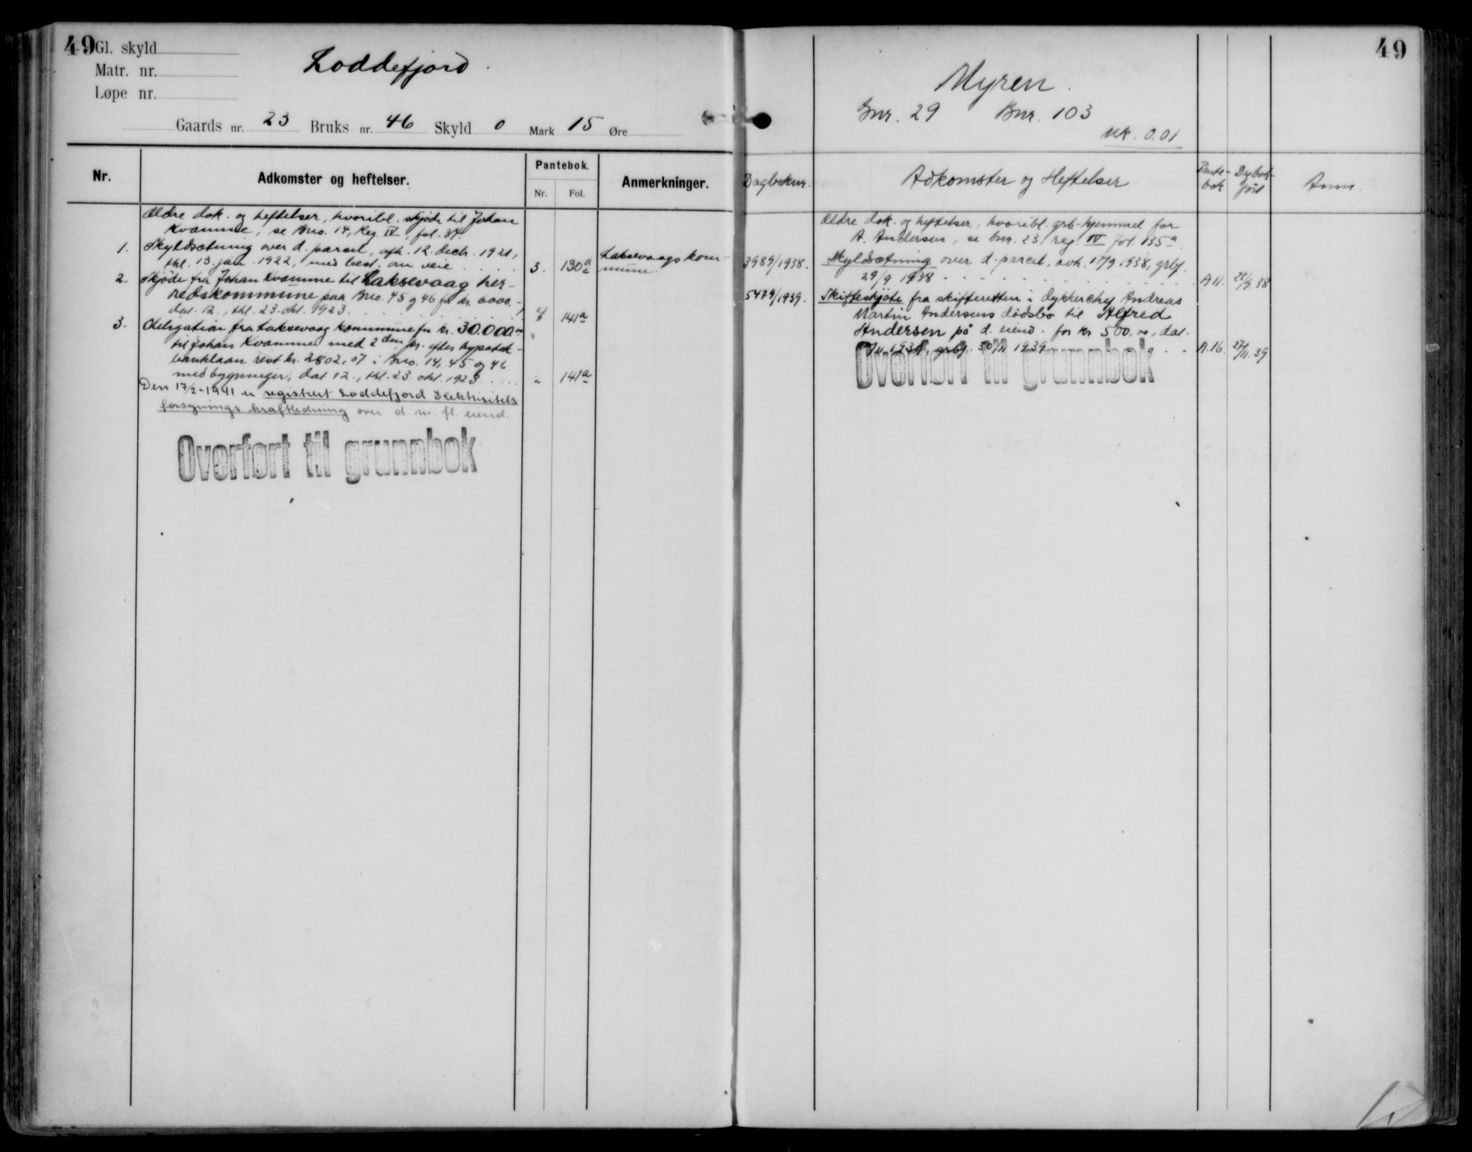 49
Gl. skyld
Matr. nr.
Løpe nr.
Loddefjord.
Gaards nr. 23 Bruks nr. 46 Skyld 0 Mark 15 Øre
Nr.
Adkomster og heftelser.
Pantebok.
Nr. Fol.
Anmerkninger.
Ældre dok. og heftelser, hvoribl. skjøde til Johan
Kvamme, se Bno. 14, Reg. IV, fol. 34.
1. Skyldsætning over d. parcel, afh. 12. decbr. 1921,
thl. 13. jan. 1922, med best. om veie . . . . 3. 130a
Laksevaags kom-
mune.
2. Skjøde fra Johan Kvamme til Laksevaag her-
redskommune paa Bno. 45 og 46 for kr. 6000,-
dat. 12., thl. 23. okt. 1923 . . . . . 4 141a
3. Obligation fra Laksevaag kommune for kr. 30.000
til Johan Kvamme med 2den pr. efter hypotek-
banklaan rest kr. 2802,07 i Bno. 14, 45 og 46
med bygninger, dat. 12., thl. 23. okt. 1923 . . . . " 141a
Den 17/2-1941 er registrert Loddefjord Elektrisitets
forsynings kraftledning over d. m. fl. eiend.
Overført til grunnbok
49
Myren.
Gnr. 29 Bnr. 103
Mk. 0.01
Dagboknr.
Adkomster og Heftelser
Pante-
bok
Dagbok-
ført
Anm.
Ældre dok. og heftelser, hvoribl. grb. hjemmel for
A. Andersen, se bnr. 23, reg. IV fol. 135a.
3989/1938. Skyldsetning over d. parcel, avh. 17/9 1938, grbf.
29/9 1938 . . . . . . . . . A 11. 29/9.38
5479/1939. Skifteskjøte fra skifteretten i dykkerchef Andreas
Martin Andersens dødsbo til Alfred
Andersen på d. eiend. for kr. 500.00, dat.
1939, grbf. 30/11 1939 . . . A.16. 27/11.39
Overført til grunnbok